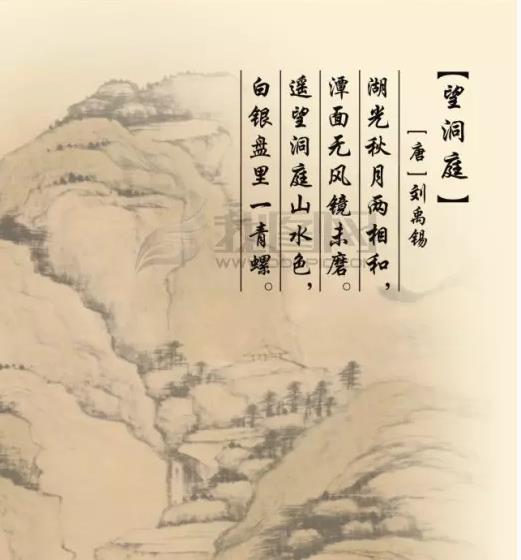 【望洞庭】
［唐］刘禹锡
湖光秋月两相和，
潭面无风镜未磨。
遥望洞庭山水色，
白银盘里一青螺。